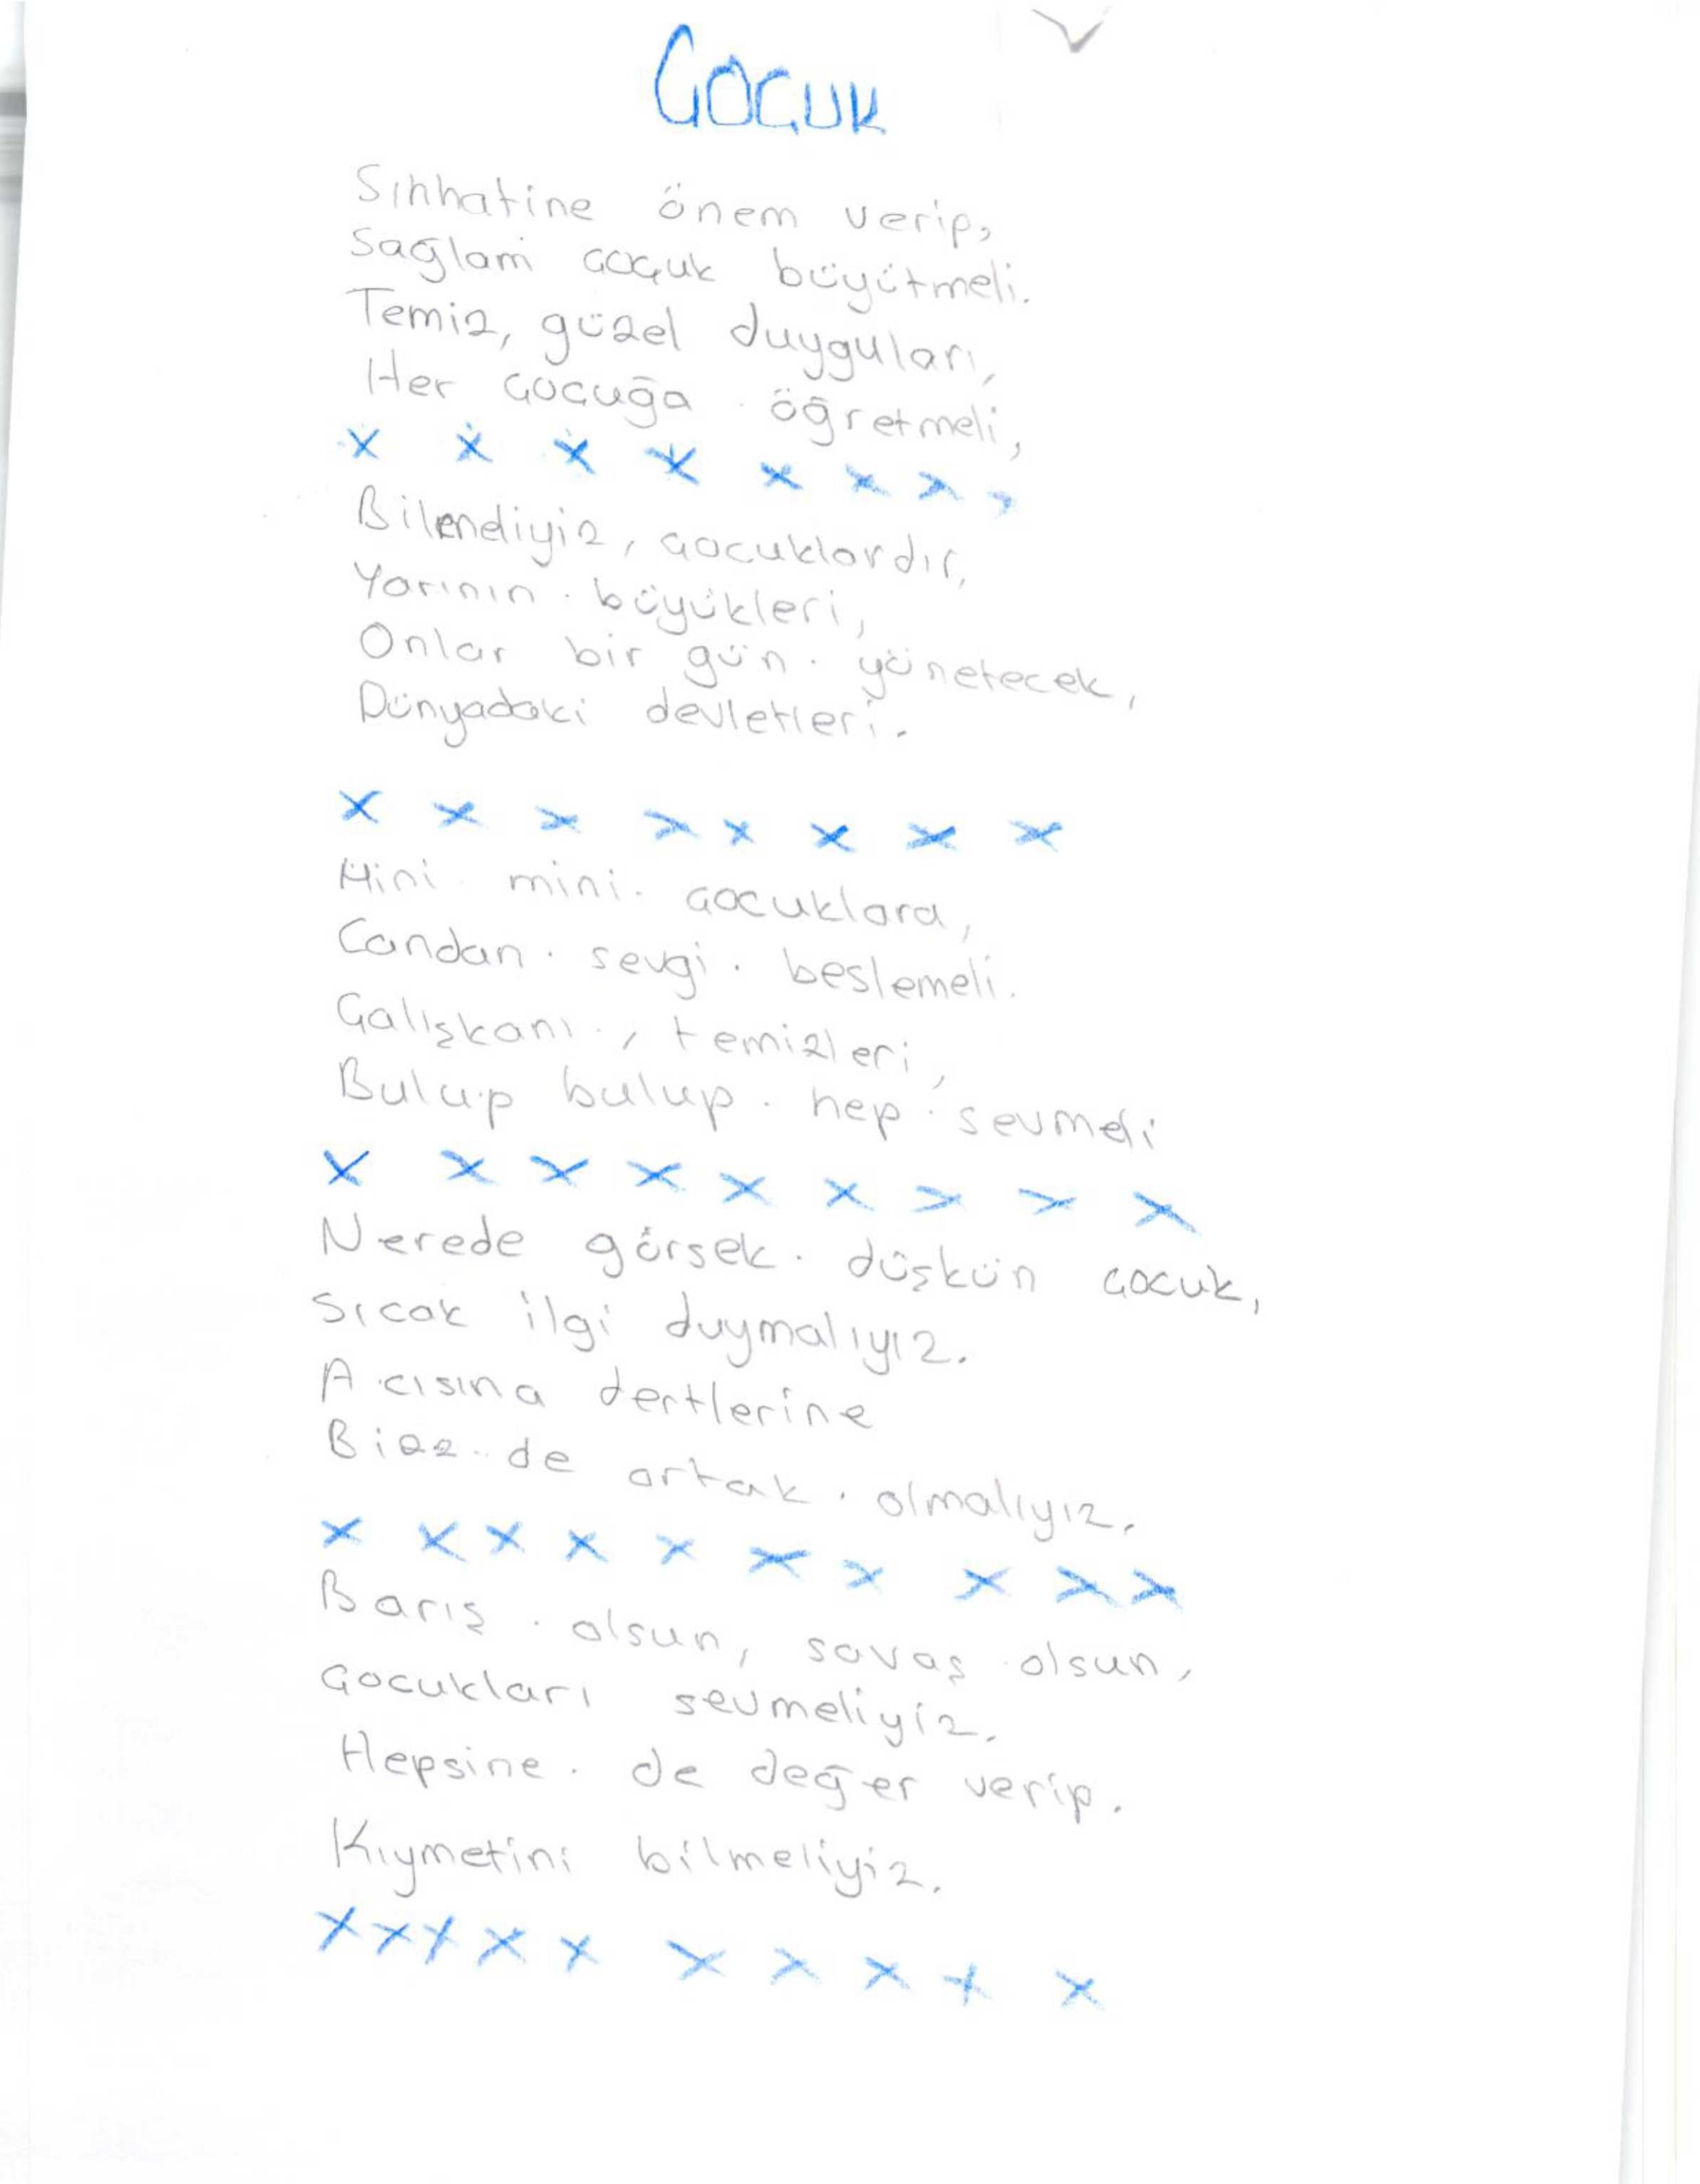 ÇOCUK
Sıhhatine önem verip,
Sağlam çoçuk büyütmeli.
Temiz, güzel duyguları,
Her çocuğa öğretmeli,
x x x x x x x x
Bilmeliyiz, çocuklardır,
Yarının büyükleri,
Onlar bir gün yönetecek,
Dünyadaki devletleri.
x x x x x x x x
Mini mini çocuklara,
Candan sevgi beslemeli.
Çalışkanı, temizleri,
Bulup bulup hep sevmeli
x x x x x x x x x
Nerede görsek düşkün çocuk,
Sıcak ilgi duymalıyız.
Acısına dertlerine
de ortak olmalıyız.
x x x x x x x x x x
Barış olsun, savaş olsun,
Çocukları sevmeliyiz.
Hepsine de değer verip.
Kıymetini bilmeliyiz.
x x x x x x x x x x